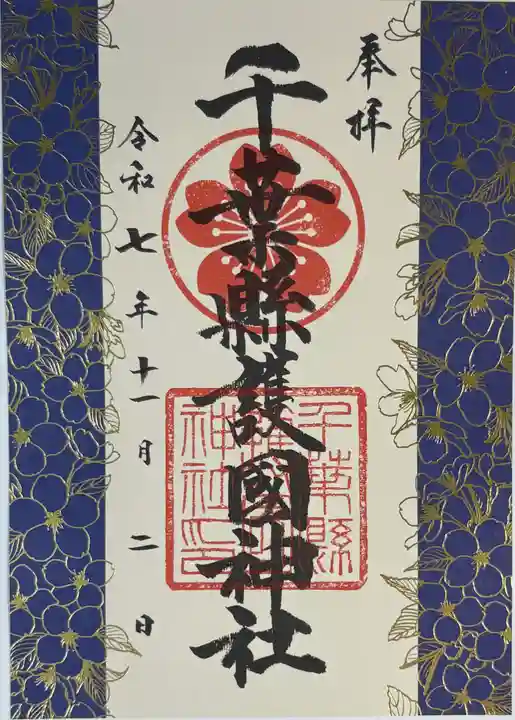 奉拝
千葉縣護國神社
千葉縣
護國
神社印
令和七年十一月二日